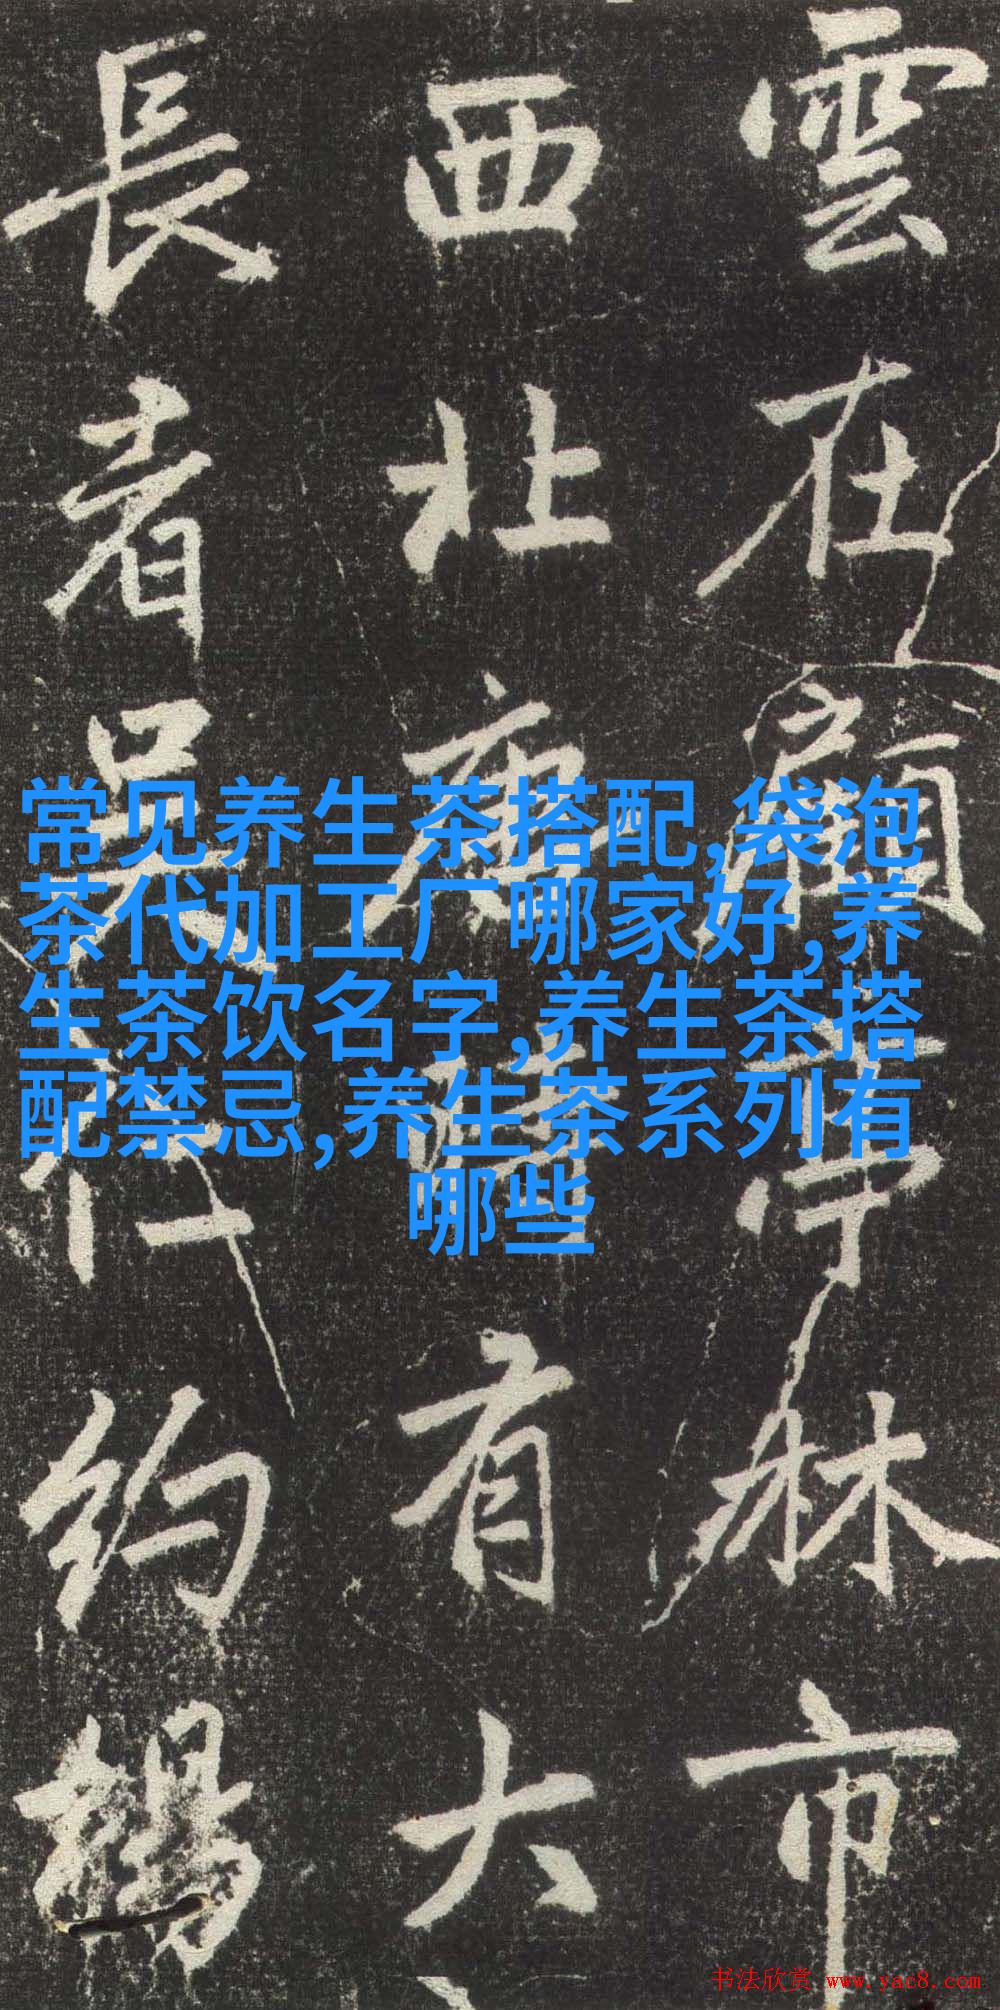 常见养生茶搭配,袋泡
茶代加工厂哪家好,养
生茶饮名字,养生茶搭
配禁忌,养生茶系列有
哪些
雲在
西北
有大
長者吴
约
市
书法欣赏 www.yac8.com